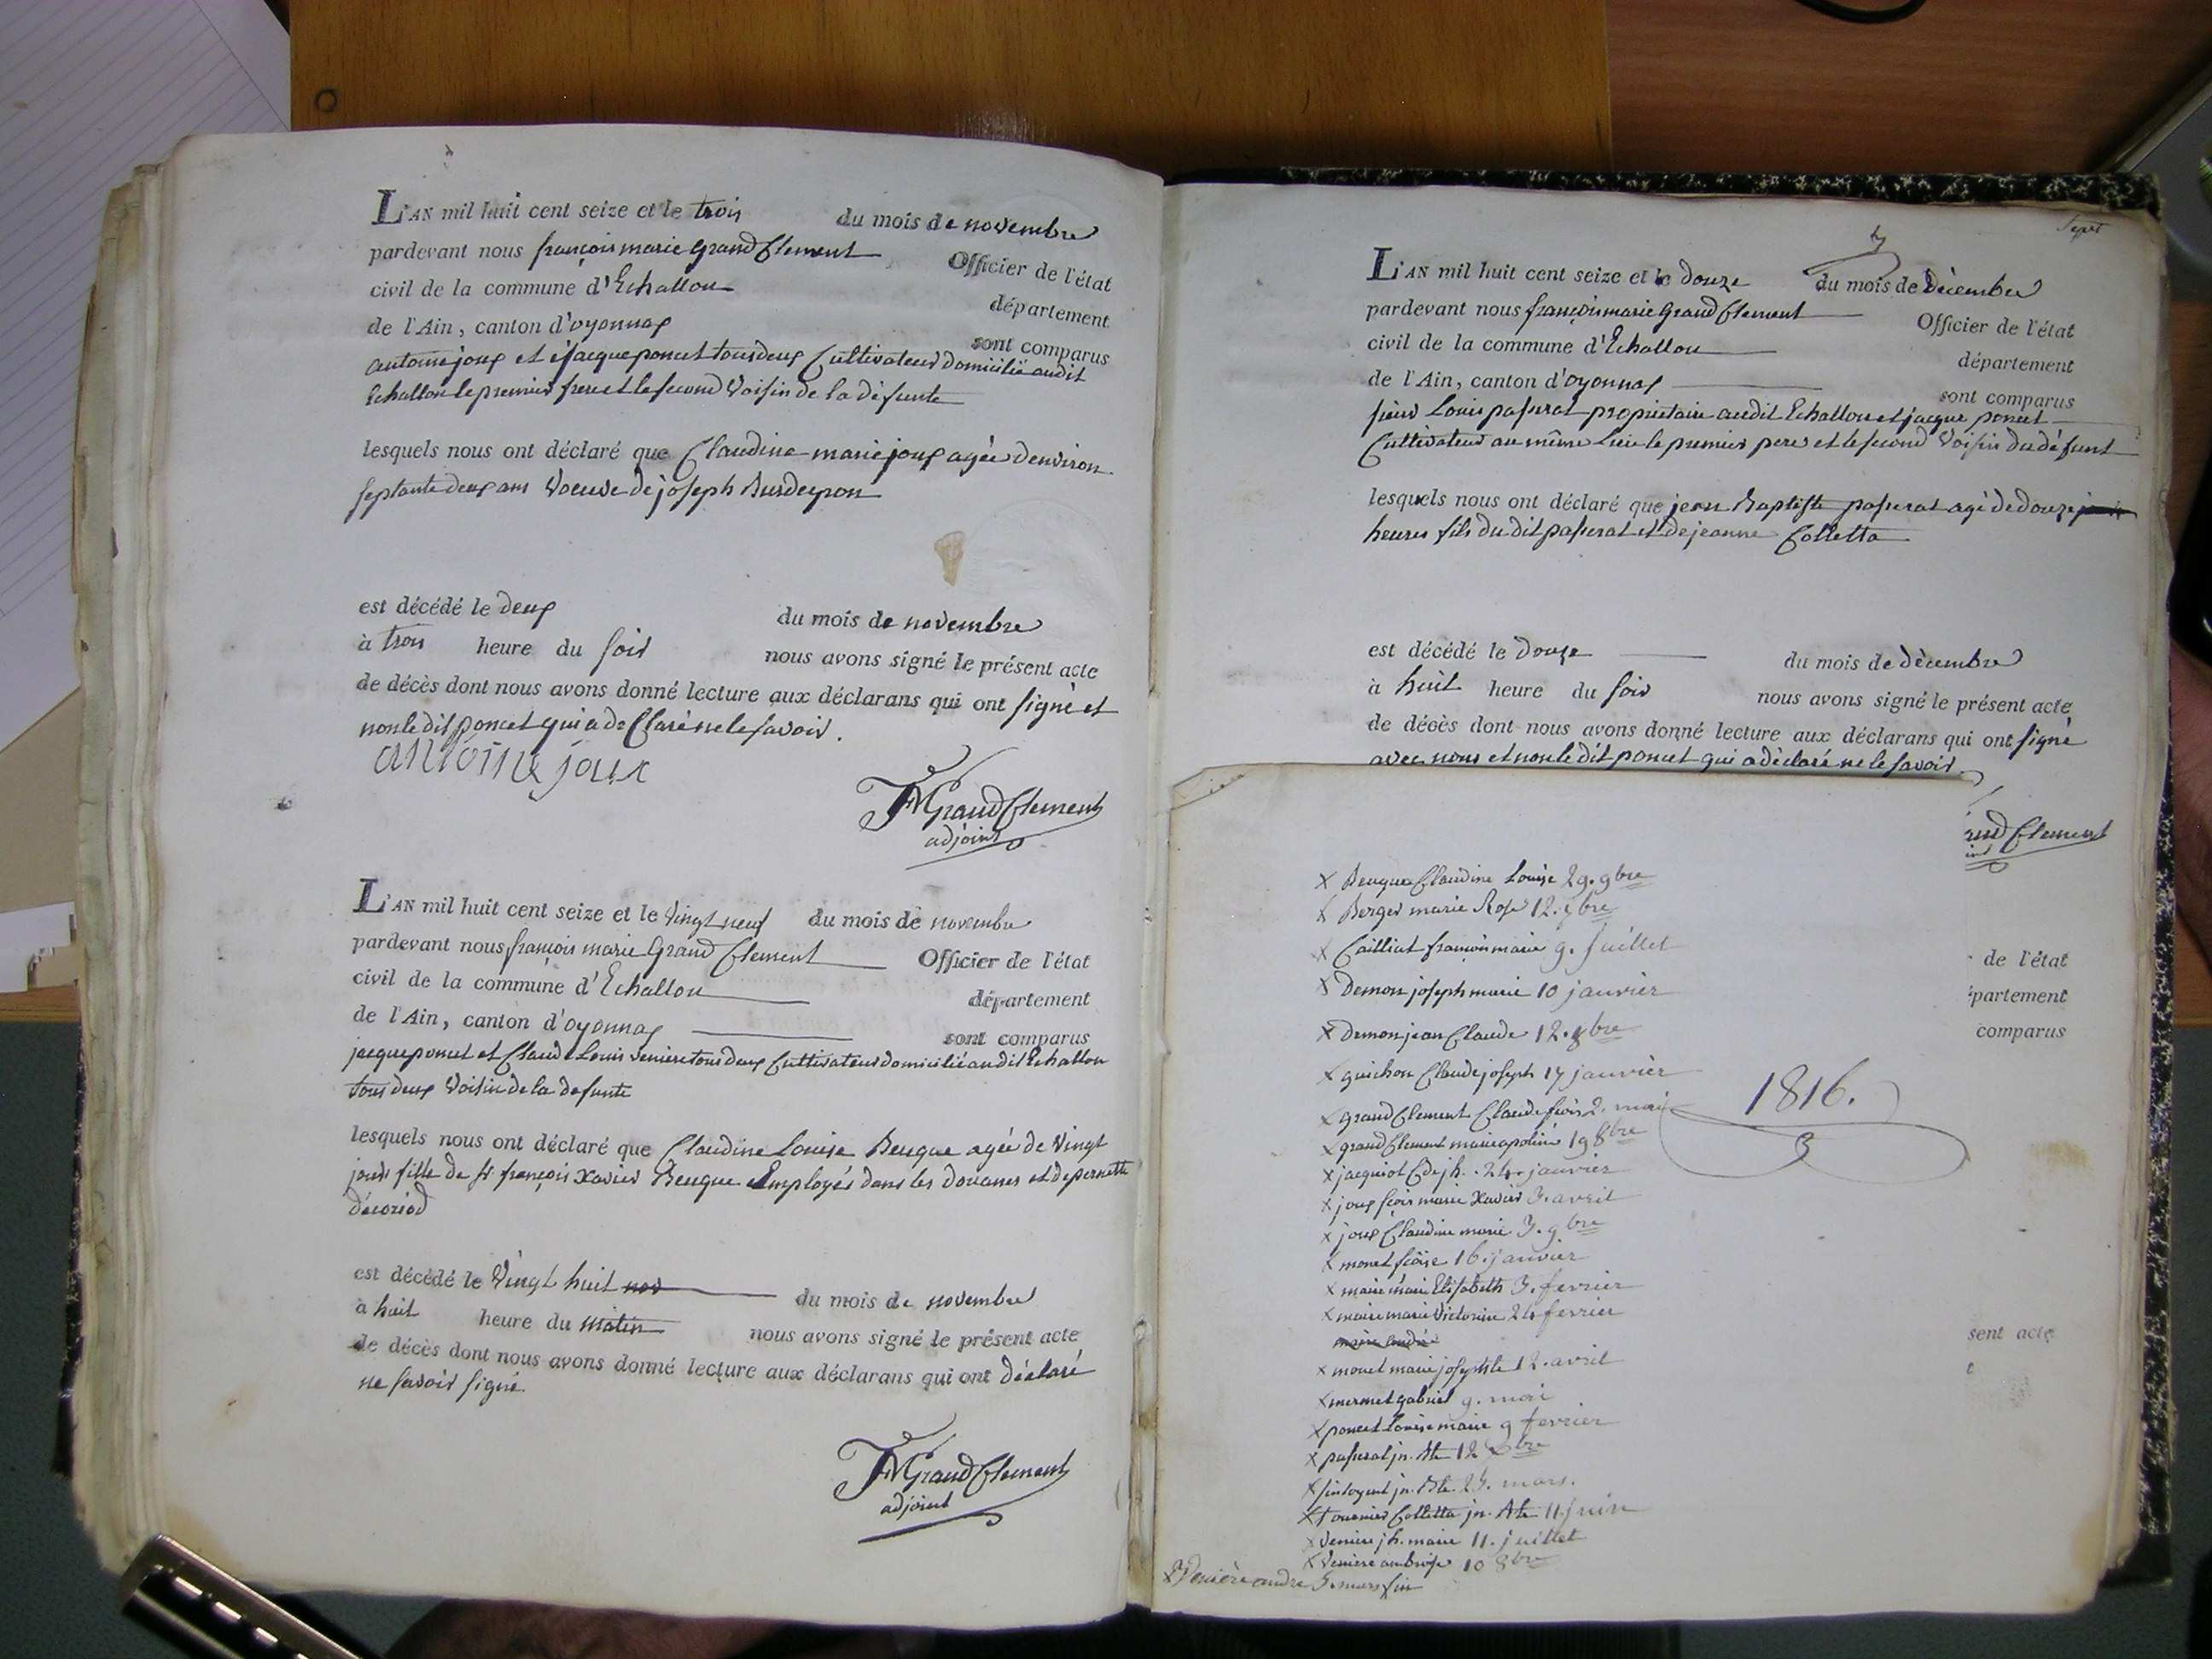 L'AN mil huit cent seize et le trois du mois de novembre
pardevant nous françois marie Grand Clement Officier de l'état
civil de la commune d'Echallon département
de l'Ain, canton d'oyonnax sont comparus
antoine joux et jacque poncet tous deux Cultivateurs domicilié audit
Echallon le premier frere et le second Voisin de la défunte
lesquels nous ont déclaré que Claudine marie joux agée denviron
septante deux ans Voeuve de joseph Burdeyron
est décédé le deux du mois de novembre
à trois heure du soir nous avons signé le présent acte
de décès dont nous avons donné lecture aux déclarans qui ont signé et
non le dit poncet qui a déClaré ne le savoir.
antoine joux
FMGrandClement
adjoint
L'AN mil huit cent seize et le Vingt neuf du mois de novembre
pardevant nous françois marie Grand Clement Officier de l'état
civil de la commune d'Echallon département
de l'Ain, canton d'oyonnax sont comparus
jacque poncet et Claude Louis veniere tous deux Cultivateurs domicilié audit Echallon
tous deux Voisin de la defunte
lesquels nous ont déclaré que Claudine Louise Beuque agée de Vingt
jours fille de sr françois Xavier Beuque Employés dans les Douanes et de pernette
est décédé le Vingt huit nov du mois de novembre
à huit heure du matin nous avons signé le présent acte
de décès dont nous avons donné lecture aux déclarans qui ont déclaré
ne savoir signé.
FMGrandClement
adjoint
Sept
7
L'AN mil huit cent seize et le douze du mois de décembre
pardevant nous françois marie Grand Clement Officier de l'état
civil de la commune d'Echallon département
de l'Ain, canton d'oyonnax sont comparus
sieur Louis passerat propriétaire audit Echallon et jacque poncet
Cultivateur au même Lieu le premier pere et le second Voisin du défunt
lesquels nous ont déclaré que jean Baptiste passerat agé de douze
heures fils du dit passerat et de jeanne Colletta
est décédé le douze du mois de décembre
à huit heure du soir nous avons signé le présent acte
de décès dont nous avons donné lecture aux déclarans qui ont signé
avec nous et non le dit poncet qui a déclaré ne le savoir.
and Clement
int
x Beuque Claudine Louise 29. 9bre
x Berger marie Rose 12. 7bre
x Cailliat françois marie 9. Juillet
de l'état
x Demon joseph marie 10 janvier
partement
x Demon jean Claude 12. 8bre
comparus
x guichon Claude joseph 17 janvier
1816.
x grand Clement Claude fçois 2. mai
x grand Clement marie apoline 19 8bre
x jacquiot Cde jh. 24. janvier
x joux fçois marie Xavier 3. avril
x joux Claudine marie 3. 9bre
x monet fçoise 16. janvier
x maire marie Elisabeth 3. fevrier
x maire marie Victorine 24 fevrier
sent acte
x monet marie josephte 12. avril
x mermet gabriel 9. mai
x poncet Louise marie 9 fevrier
x passerat jn. Bte 12 Xbre
jn. Bte 25. mars.
x Tournier Colletta jn. Bte 11. juin
x Veniere jh. marie 11. juillet
x Veniere ambroise 10 8bre
x Venière andré 5. mars fin